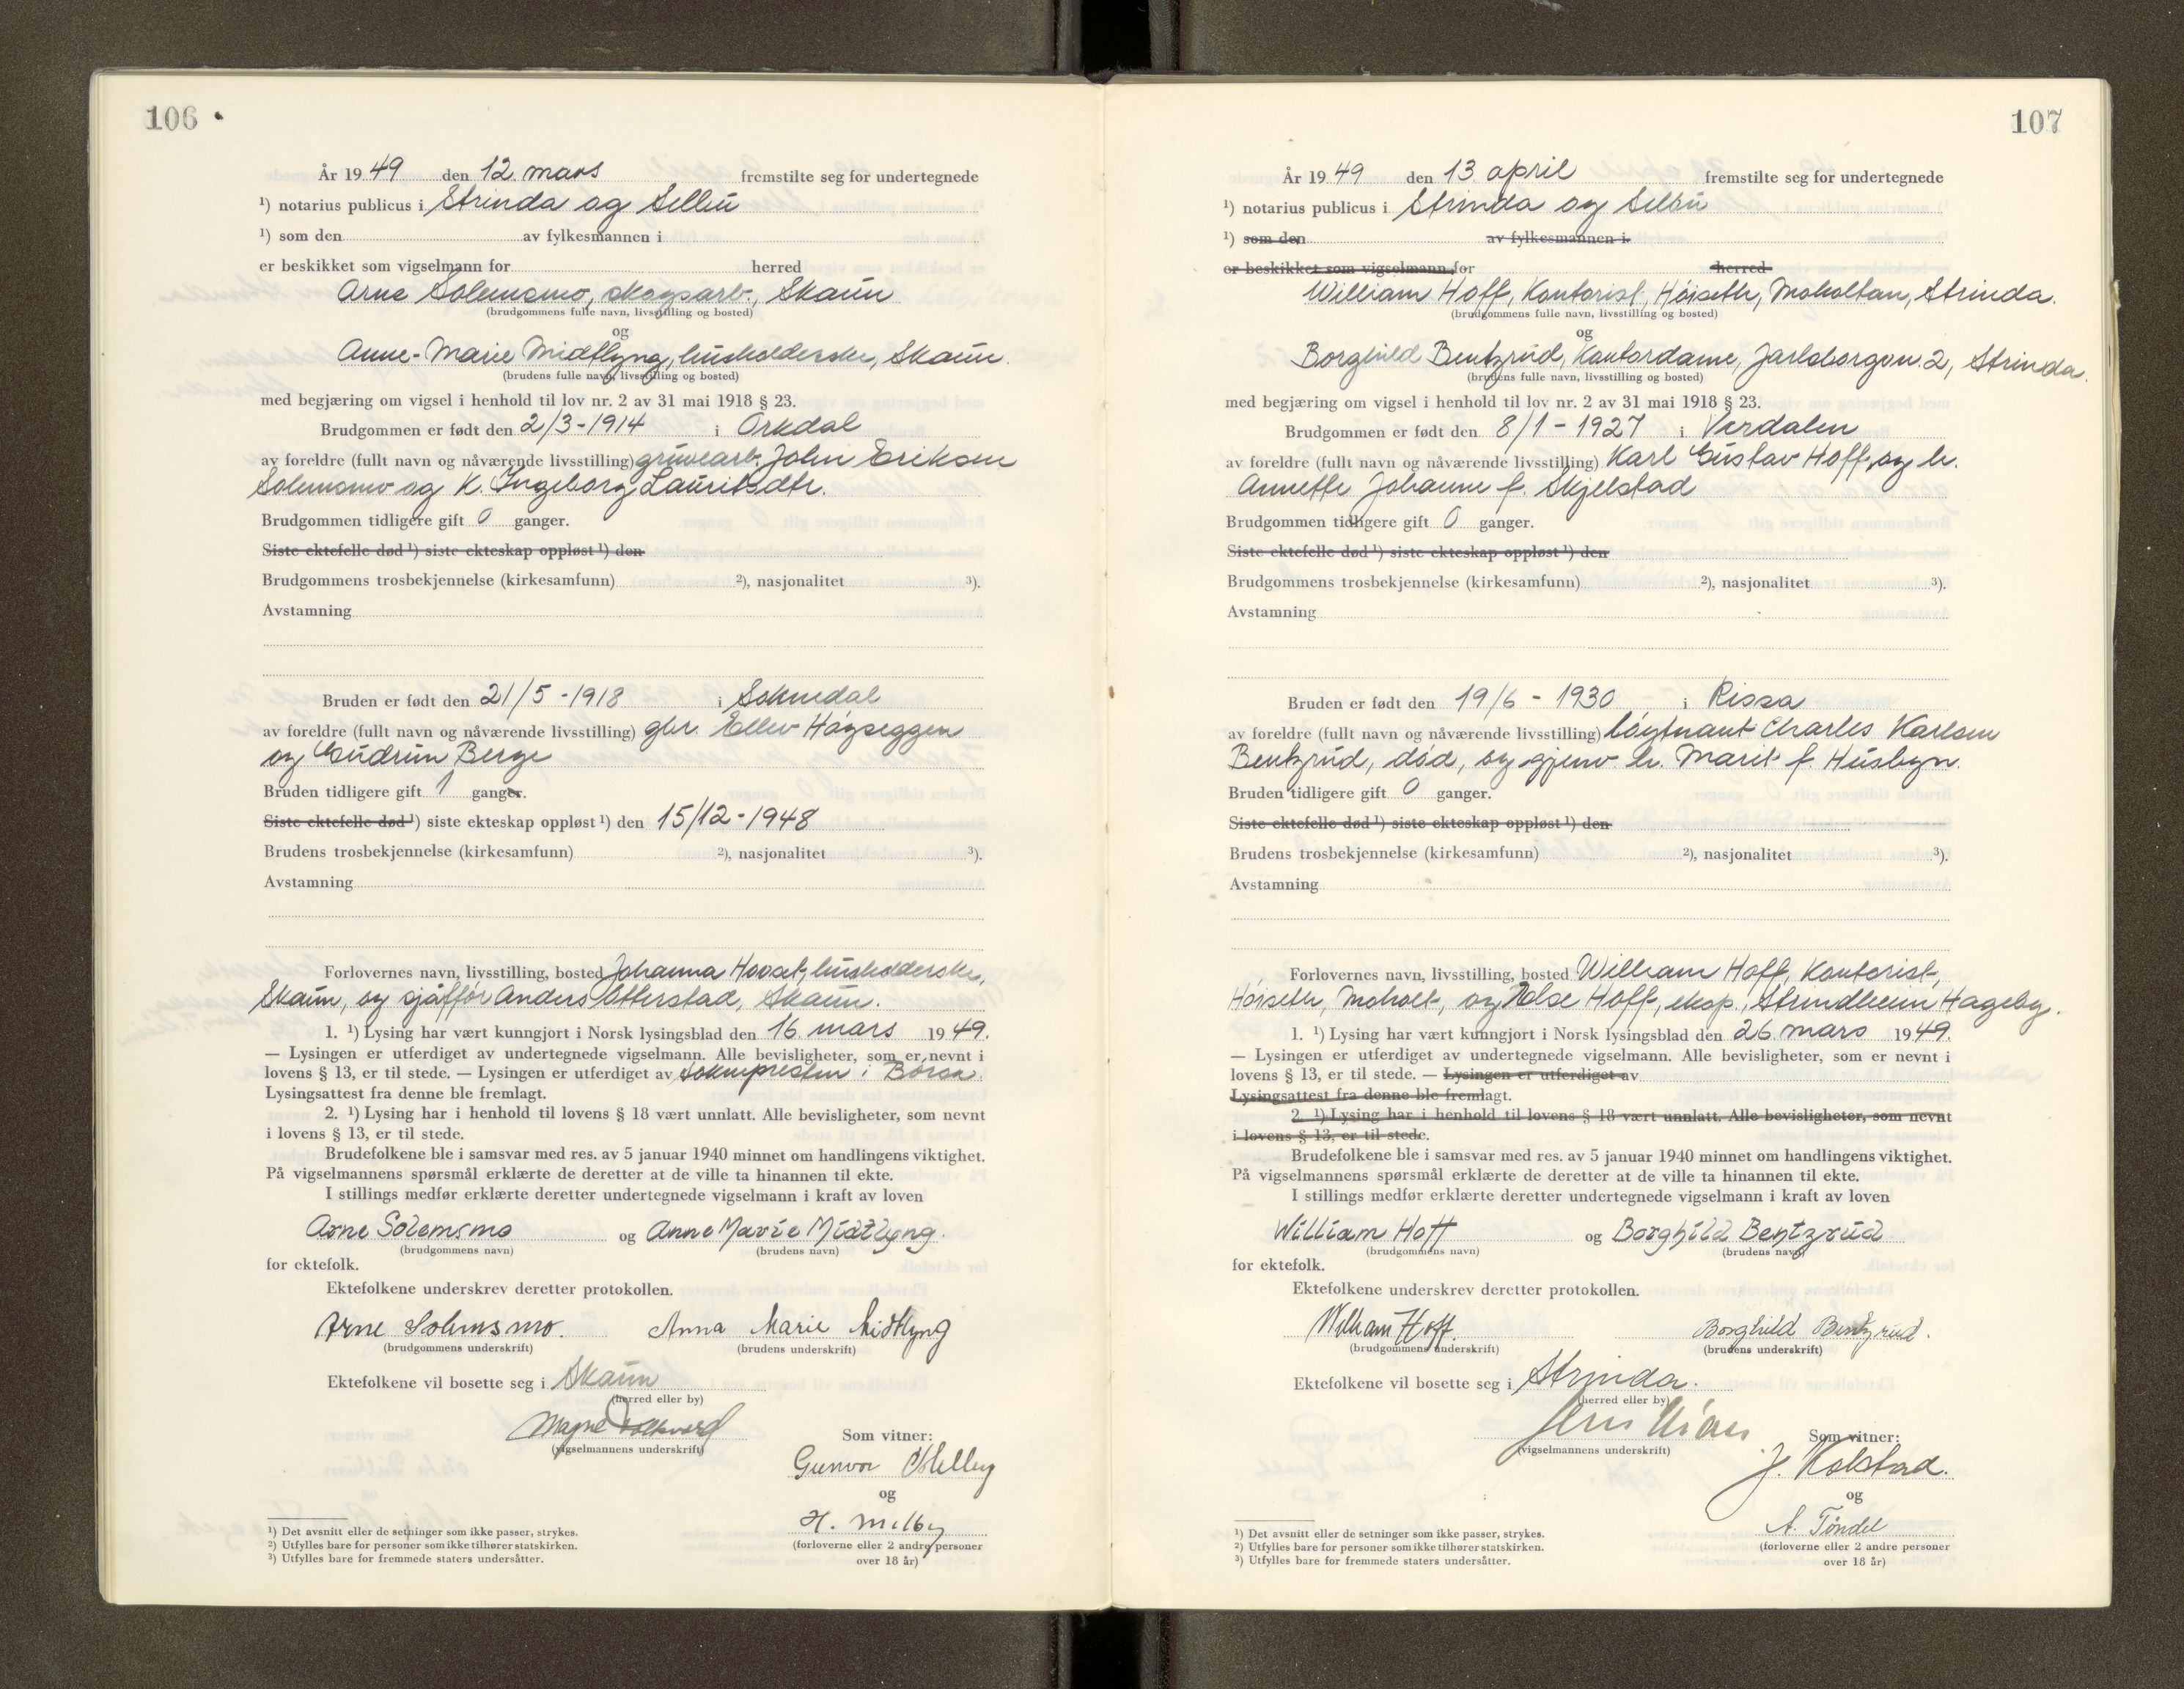 106
År 1949 den 12. mars fremstilte seg for undertegnede
¹) notarius publicus i Strinda og Selbu
¹) som den av fylkesmannen i
er beskikket som vigselmann for herred
Arne Solemsmo, skogsarb., Skaun
(brudgommens fulle navn, livsstilling og bosted)
og
Anne-Marie Midtlyng, husholderske, Skaun.
(brudens fulle navn, livsstilling og bosted)
med begjæring om vigsel i henhold til lov nr. 2 av 31 mai 1918 § 23.
Brudgommen er født den 2/3-1914 i Orkdal
av foreldre (fullt navn og nåværende livsstilling) gruvearb. John Eriksen
Solemsmo og h. Ingeborg Lauritsdtr.
Brudgommen tidligere gift 0 ganger.
Siste ektefelle død ¹) siste ekteskap oppløst ¹) den
Brudgommens trosbekjennelse (kirkesamfunn) ²), nasjonalitet ³).
Avstamning
Bruden er født den 21/5-1918 i Soknedal
av foreldre (fullt navn og nåværende livsstilling) gbr. Ellev Høgseggen
og Gudrun Berge
Bruden tidligere gift 1 ganger.
Siste ektefelle død ¹) siste ekteskap oppløst ¹) den 15/12-1948
Brudens trosbekjennelse (kirkesamfunn) ²), nasjonalitet ³).
Avstamning
Forlovernes navn, livsstilling, bosted Johanna Hovset, husholderske,
Skaun, og sjåffør Anders Otterstad, Skaun.
1. ¹) Lysing har vært kunngjort i Norsk lysingsblad den 16. mars 1949.
— Lysingen er utferdiget av undertegnede vigselmann. Alle bevisligheter, som er nevnt i
lovens § 13, er til stede. — Lysingen er utferdiget av soknepresten i Børsa.
Lysingsattest fra denne ble fremlagt.
2. ¹) Lysing har i henhold til lovens § 18 vært unnlatt. Alle bevisligheter, som nevnt
i lovens § 13, er til stede.
Brudefolkene ble i samsvar med res. av 5 januar 1940 minnet om handlingens viktighet.
På vigselmannens spørsmål erklærte de deretter at de ville ta hinannen til ekte.
I stillings medfør erklærte deretter undertegnede vigselmann i kraft av loven
Arne Solemsmo og Anne Marie Midtlyng.
(brudgommens navn) (brudens navn)
for ektefolk.
Ektefolkene underskrev deretter protokollen.
Arne Solemsmo. Anna Marie Midtlyng
(brudgommens underskrift) (brudens underskrift)
Ektefolkene vil bosette seg i Skaun
(herred eller by)
Magne
(vigselmannens underskrift)
Som vitner:
Gunvor
og
H. Melby
(forloverne eller 2 andre personer
over 18 år)
¹) Det avsnitt eller de setninger som ikke passer, strykes.
²) Utfylles bare for personer som ikke tilhører statskirken.
³) Utfylles bare for fremmede staters undersåtter.
107
År 1949 den 13. april fremstilte seg for undertegnede
¹) notarius publicus i Strinda og Selbu
¹) som den av fylkesmannen i
er beskikket som vigselmann for herred
William Hoff, Kontorist, Høiseth, Moholtan, Strinda.
(brudgommens fulle navn, livsstilling og bosted)
og
Borghild Bentzrud, Kontordame, Jarlsborgvn. 2, Strinda.
(brudens fulle navn, livsstilling og bosted)
med begjæring om vigsel i henhold til lov nr. 2 av 31 mai 1918 § 23.
Brudgommen er født den 8/1-1927 i Verdalen
av foreldre (fullt navn og nåværende livsstilling) Karl Gustav Hoff, og h.
Annette Johanne f. Skjelstad
Brudgommen tidligere gift 0 ganger.
Siste ektefelle død ¹) siste ekteskap oppløst ¹) den
Brudgommens trosbekjennelse (kirkesamfunn) ²), nasjonalitet ³).
Avstamning
Bruden er født den 19/6-1930 i Rissa
av foreldre (fullt navn og nåværende livsstilling) løytnant Charles Karlsen
Bentzrud, død, og gjenv. h. Marit f. Husbyn.
Bruden tidligere gift 0 ganger.
Siste ektefelle død ¹) siste ekteskap oppløst ¹) den
Brudens trosbekjennelse (kirkesamfunn) ²), nasjonalitet ³).
Avstamning
Forlovernes navn, livsstilling, bosted William Hoff, Kontorist,
Høiseth, Moholt, og Else Hoff, eksp., Strindheim Hageby.
1. ¹) Lysing har vært kunngjort i Norsk lysingsblad den 26 mars 1949.
— Lysingen er utferdiget av undertegnede vigselmann. Alle bevisligheter, som er nevnt i
lovens § 13, er til stede. — Lysingen er utferdiget av
Lysingsattest fra denne ble fremlagt.
2. ¹) Lysing har i henhold til lovens § 18 vært unnlatt. Alle bevisligheter, som nevnt
i lovens § 13, er til stede.
Brudefolkene ble i samsvar med res. av 5 januar 1940 minnet om handlingens viktighet.
På vigselmannens spørsmål erklærte de deretter at de ville ta hinannen til ekte.
I stillings medfør erklærte deretter undertegnede vigselmann i kraft av loven
William Hoff og Borghild Bentzrud
(brudgommens navn) (brudens navn)
for ektefolk.
Ektefolkene underskrev deretter protokollen.
William Hoff. Borghild Bentzrud.
(brudgommens underskrift) (brudens underskrift)
Ektefolkene vil bosette seg i Strinda.
(herred eller by)
(vigselmannens underskrift)
Som vitner:
J. Kolstad.
og
A. Tøndel
(forloverne eller 2 andre personer
over 18 år)
¹) Det avsnitt eller de setninger som ikke passer, strykes.
²) Utfylles bare for personer som ikke tilhører statskirken.
³) Utfylles bare for fremmede staters undersåtter.